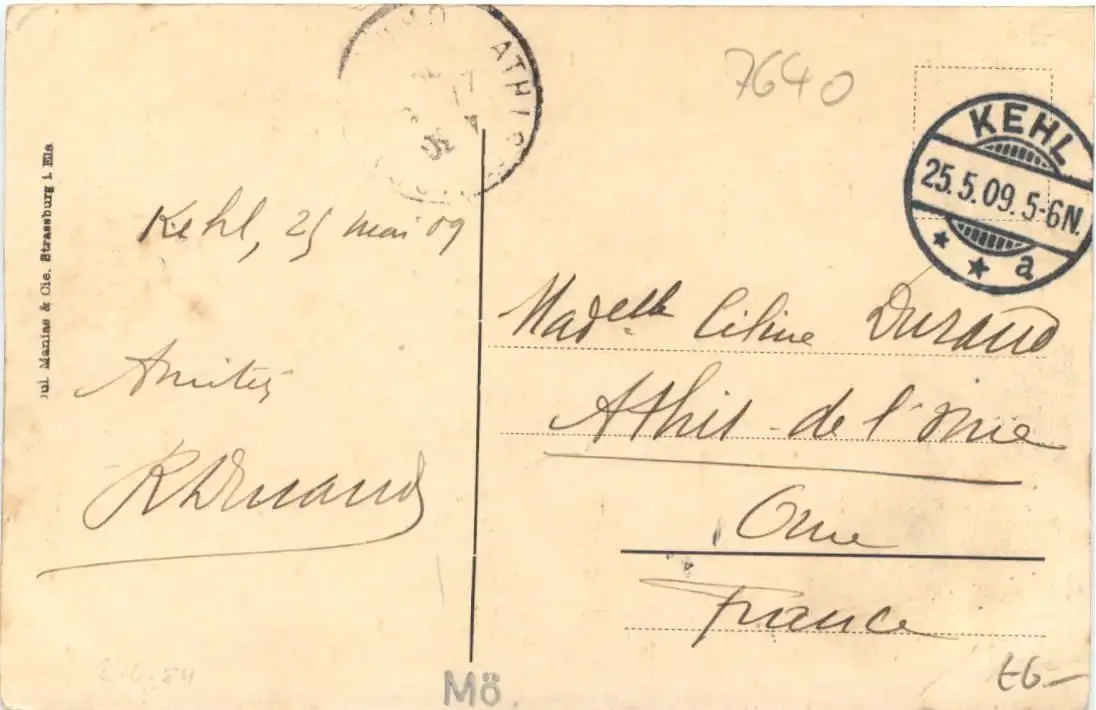 ATHIS
7640
KEHL
25.5.09. 5-6N.
a
Jul. Manias & Cie. Strassburg i. Els.
Kehl, 25 mai 09
Amitiés
R Durand
Madelle Céline Durand
Athis-de l'Orne
Orne
France
Mö